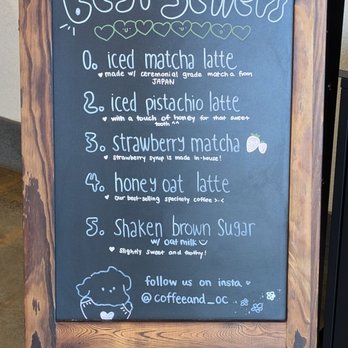 Best Sellers
0. iced matcha latte
made w/ ceremonial grade matcha from
JAPAN
2. iced pistachio latte
with a touch of honey for that sweet
tooth ^^
3. strawberry matcha
strawberry syrup is made in-house!
4. honey oat latte
our best-selling specialty coffee >-<
5. Shaken brown Sugar
w/ oat milk
Slightly sweet and frothy!
follow us on insta
@coffeeand_oc